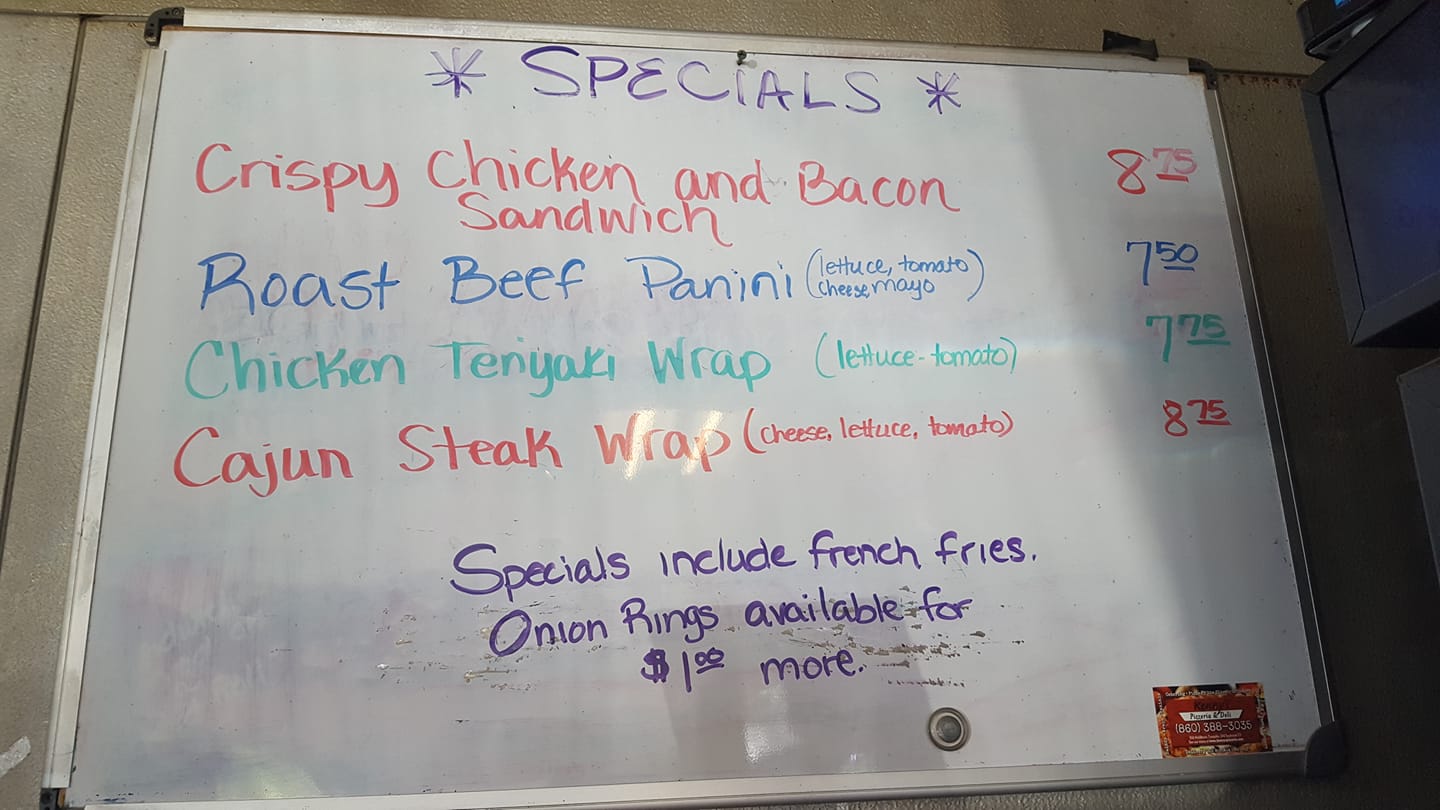 * SPECIALS *
Crispy Chicken and Bacon 8.75
Sandwich
Roast Beef Panini (lettuce, tomato 7 50
cheese, mayo)
Chicken Teriyaki Wrap (lettuce-tomato) 7 75
Cajun Steak Wrap (cheese, lettuce, tomato) 8 75
Specials include french fries.
Onion Rings available for
$1 00 more.
Pizzeria & Deli
(860) 388-3035